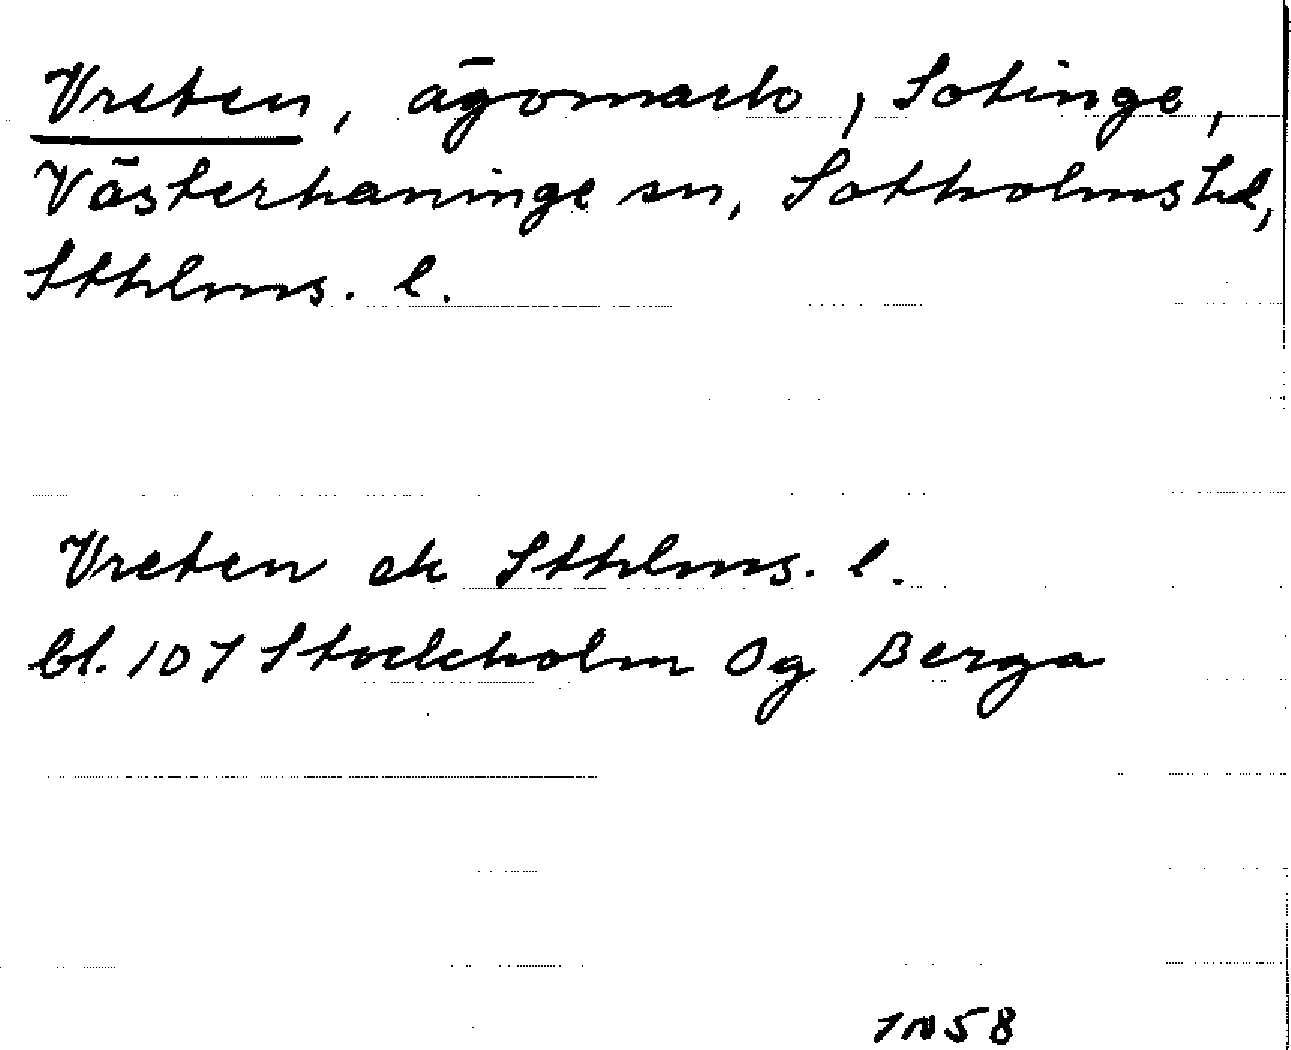 Vreten, ägomark, Sotinge,
Västerhaninge sn, Sotholms hd,
Sthlms. l.
Vreten ek Sthlms. l.
bl. 107 Stockholm Og Berga
58